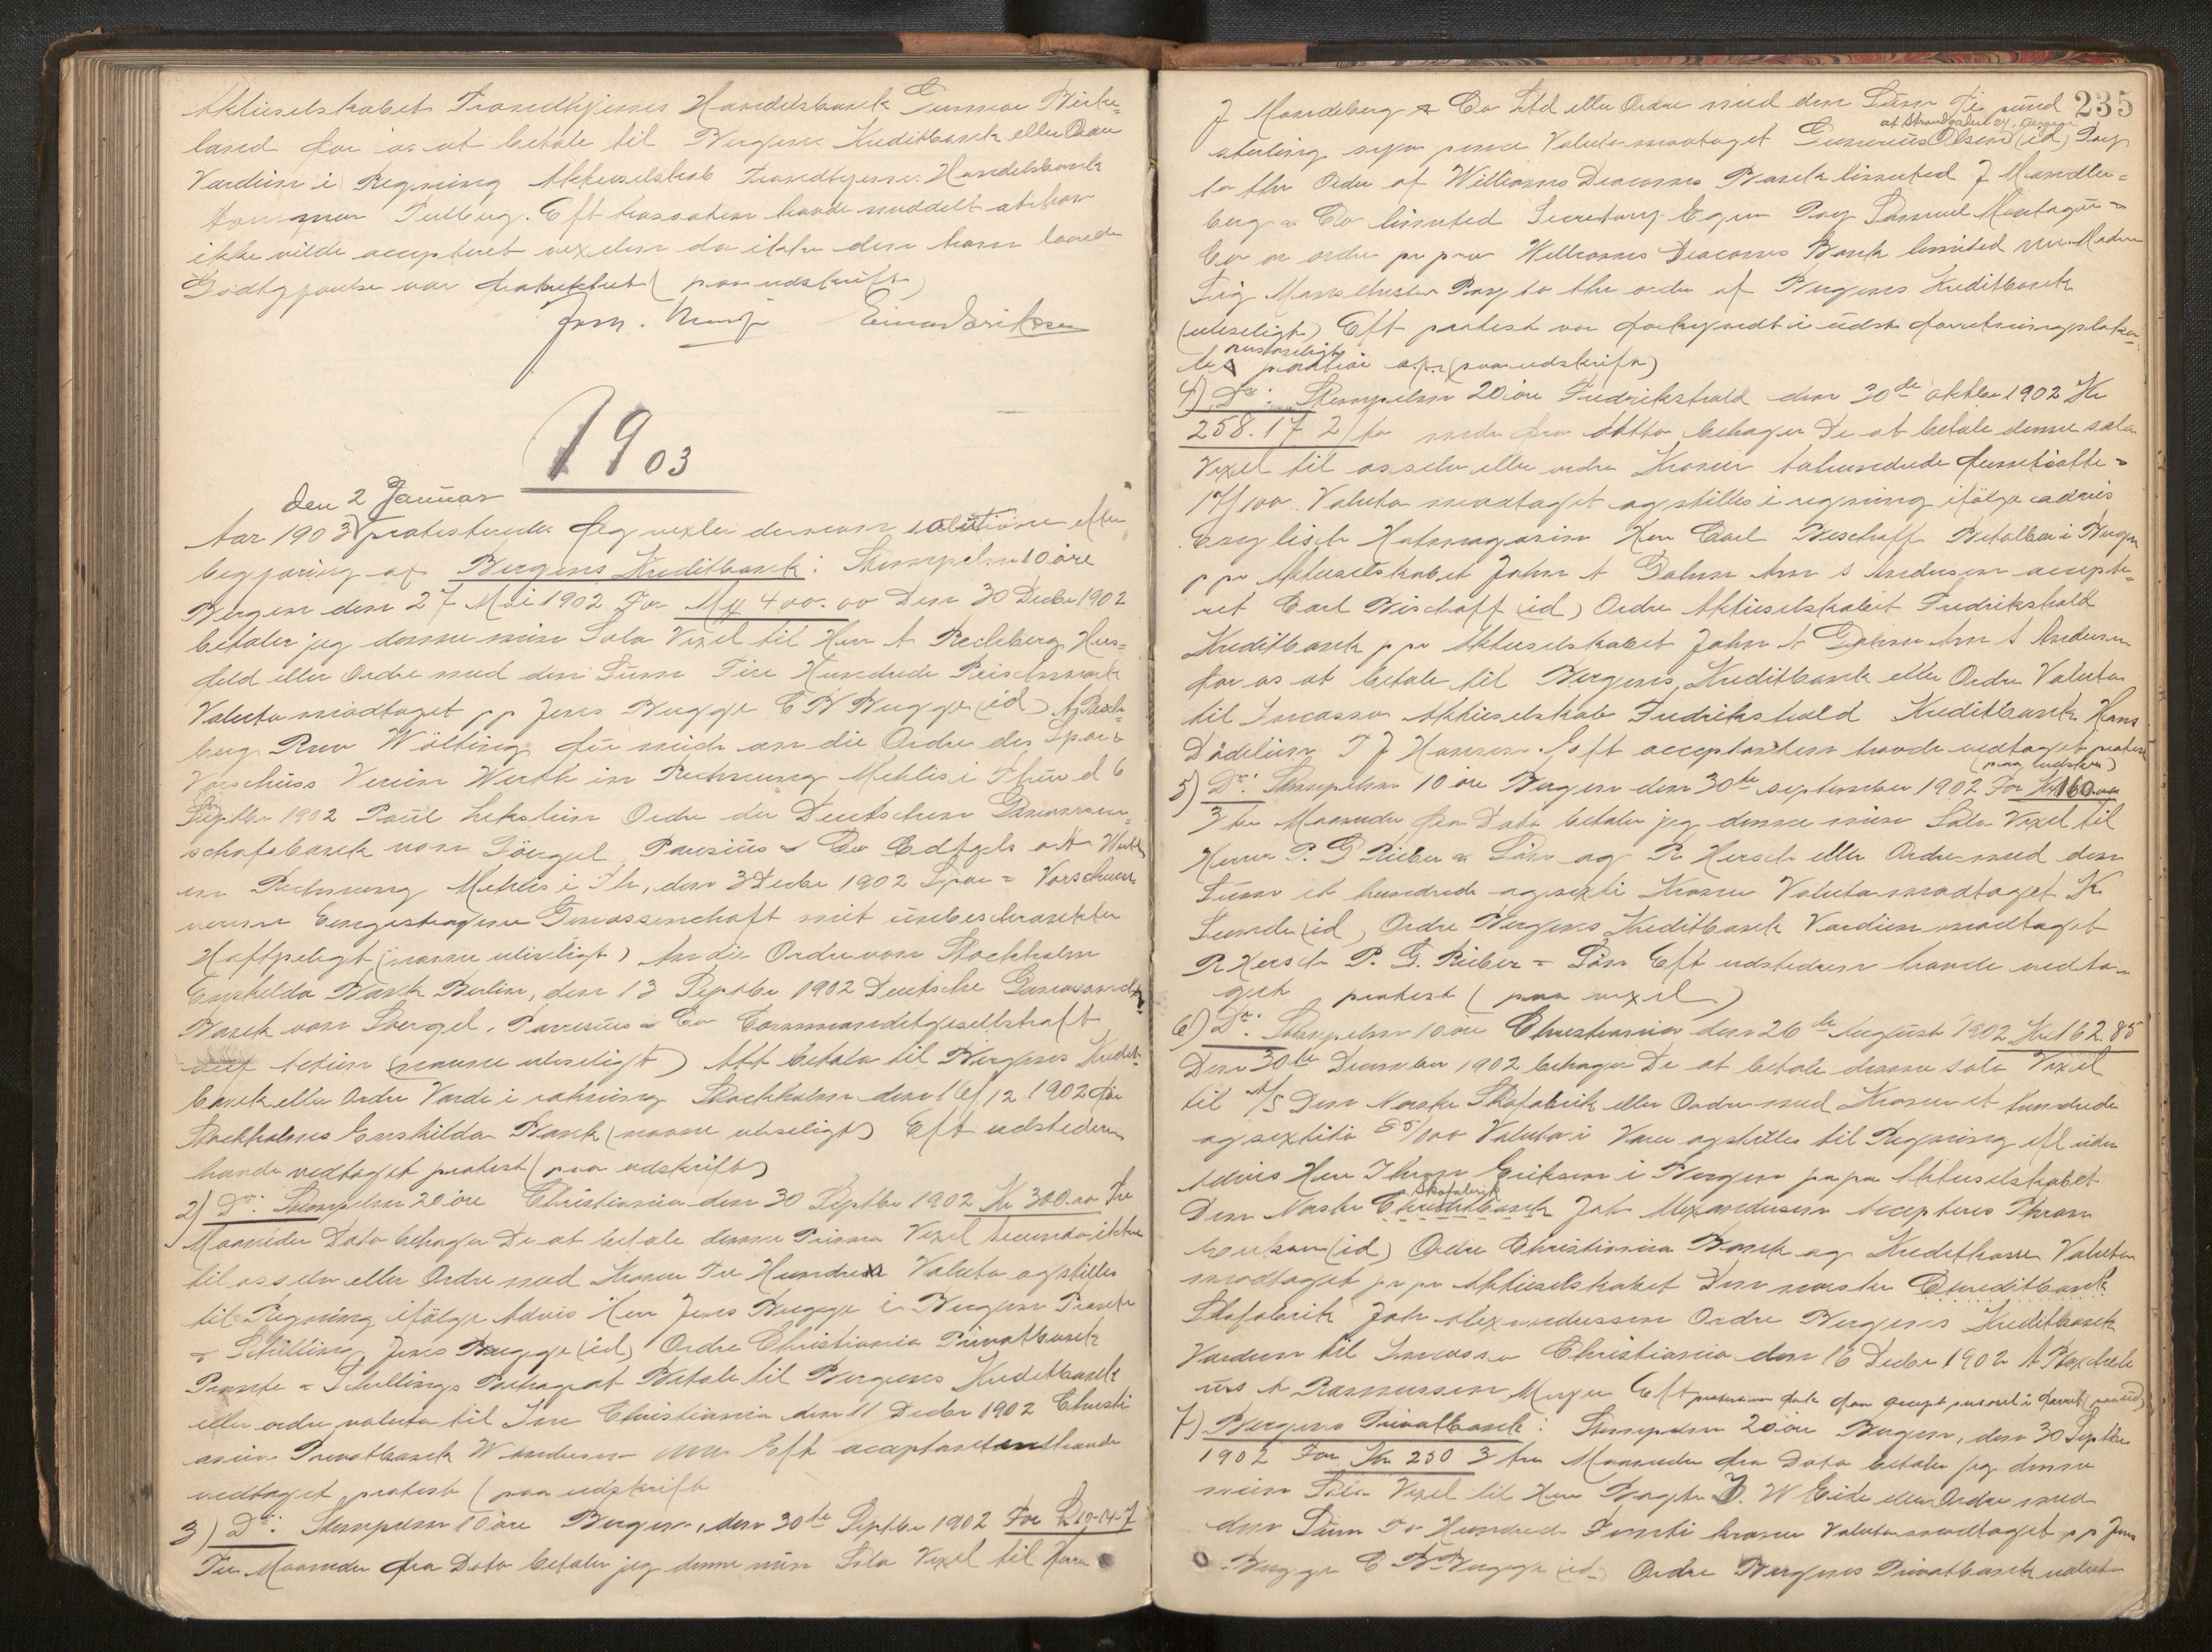 Aktieselskabet Trondhjems Handelsbank Gunnar Birke=
land for os at betale til Bergens Kreditbank eller Ordre
Værdien i Regning Aktieselskab Trondhjems Handelsbank
Eft trassaten havde meddelt at han
ikke vilde acceptert vexelen da ikke den ham lovede
Godtgjørelse var fratrukket (paa udskrift)
Einar Eriksen
1903
den 2 Januar
Aar 1903 protesterede jeg vexler dennom solutione efter
begjæring af Bergens Kreditbank: Stempelm 10 öre
Bergen den 27 Mai 1902 For Mk 400.00 Den 30 Decbr 1902
betaler jeg denne min Sola Vexel til Herr A Rechberg Hers=
feld eller Ordre med den Sum Fire Hundrede Reichsmark
Valuta modtaget pp Jens Bugge C B Bugge (id) A Rech=
berg Für mich an die Ordre des Spar &
Vorschuss Verein Werth in Rechnung Mehlis i Thür d 6
Septbr 1902 Paul Ordre der Deutschen Genossen=
schaftsbank von Soergel, Parisius & Co Werth
in Rechnung Mehlis i Th, den 3 Decbr 1902 Spar = Vorschuss
verein Eingetragene Genossenschaft mit unbeschrankter
Haftpfligt (navne uleseligt) An die Ordre von Stockholm
Enskilda Bank Berlin, den 13 Deptbr 1902 Deutsche Genossensch
Bank von Soergel, Parrisius & Co Commanditgesellshaft
auf Actien (navne uleseligt) Att betala til Bergens Kredit=
bank eller Ordre Värde i räkning Stockholm den 16/12 1902 för
Stockholms Enskilda Bank (navne uleseligt) Eft udstederen
havde vedtaget protest (paa udskrift)
2) Do: Stempelm 20 öre Christiania den 30 Septbr 1902 Kr 300.00 Tre
Maaneder Dato behager De at betale denne Prima Vexel secunda ikke
til os selv eller Ordre med Kroner Tre Hundrede Valuta og stilles
til Regning ifölge Advis Herr Jens Bugge i Bergen
& Schilling Jens Bugge (id) Ordre Christiania Privatbank
& Schillings Behag at Betale til Bergens Kreditbank
eller ordre valuta til Inc Christiania den 11 Decbr 1902 Christi
ania Privatbank W Andersen Eft acceptanten havde
vedtaget protest (paa udskrift
3) Do: Stempelm 10 öre Bergen, den 30te Septbr 1902 For £ 10-14-7
Tre Maaneder fra Dato betaler jeg denne min Sola Vexel til Herrer
235
J Mandleberg & Co Ltd eller Ordre med den Sum Ti pund
at Strandgaden 24, Bergen
sterling syv pence Valuta modtaget Gunerius Olsen (id) Pay
to the Order of Williams Deacons Bank limited J Mandle=
berg & Co limited Secretary Pay Samuel Montague &
Co or order pr pro Williams Deacons Bank limited
Manchester Pay to the order of Bergens Kreditbank
(uleseligt) Eft protest var forkyndt i udst forretningslokal
(paa udskrift)
4) Do: Stempelm 20 öre Fredrikshald den 30de oktbr 1902 Kr
258.17 2 to mdr fra Datto behager De at betale denne sola
Vexel til os selv eller ordre Kroner tohundrede femtiotte &
17/100. Valuta modtaget og stilles i regning ifölge advis
Englisch Hatmagasin Herr Carl Bischoff Betalbar i Bergen
p pr Aktieselskabet John A Andersen accepte=
ret Carl Bischoff (id) Ordre Aktieselskabet Fredrikshald
Kreditbank p pr Aktieselskabet John A Andersen
for os at betale til Bergens Kreditbank eller Ordre Valuta
til Incasso Aktieselskab Fredrikshald Kreditbank Hans
T J Hansen Eft acceptanten havde vedtaget protest
(paa udskrift)
5) Do: Stempelm 10 öre Bergen den 30te september 1902 For Kr 160.00
3 tre Maaneder fra Dato betaler jeg denne min Sola Vexel til
Herrer P. G Rieber & Sön og R Hersch eller Ordre med den
Sum et hundrede og sexti Kroner Valuta modtaget K
Lunde (id) Ordre Bergens Kreditbank Værdien modtaget
R Hersch P. G. Rieber & Sön Eft udstederen havde vedta=
get protest (paa vexel)
6) Do: Stempelm 10 öre Christiania den 26de August 1902 Kr 162.85
Den 30te December 1902 behager De at betale denne sola Vexel
til A/S Den Norske Skofabrik eller Ordre med Kroner et hundrede
og sextito 85/100 Valuta i Varer og stilles til Regning
Advis Herr Thron Erikson i Bergen pr pr Aktieselskabet
Skofabrik
Den Norske Creditbank Joh Alexandersen Accepteres Thron
Erikson (id) Ordre Christiania Bank og Kreditkasse Valuta
modtaget pr pr Aktieselskabet Den norske Creditbank
Skofabrik Joh Alexanderssen Ordre Bergens Kreditbank
Værdien til Incasso Christiania den 16 Decbr 1902
A Rasmussen Meyer Eft
7) Bergens Privatbank: Stempelm 20 öre Bergen, den 30 Septbr
1902 For Kr 250 3 tre Maaneder fra Dato betaler jeg denne
min Sola Vexel til Herr J. W Eide eller Ordre med
den Sum To Hundrede Femti kroner Valuta modtaget pp Jens
Bugge C B Bugge (id) Ordre Bergens Privatbank valuta